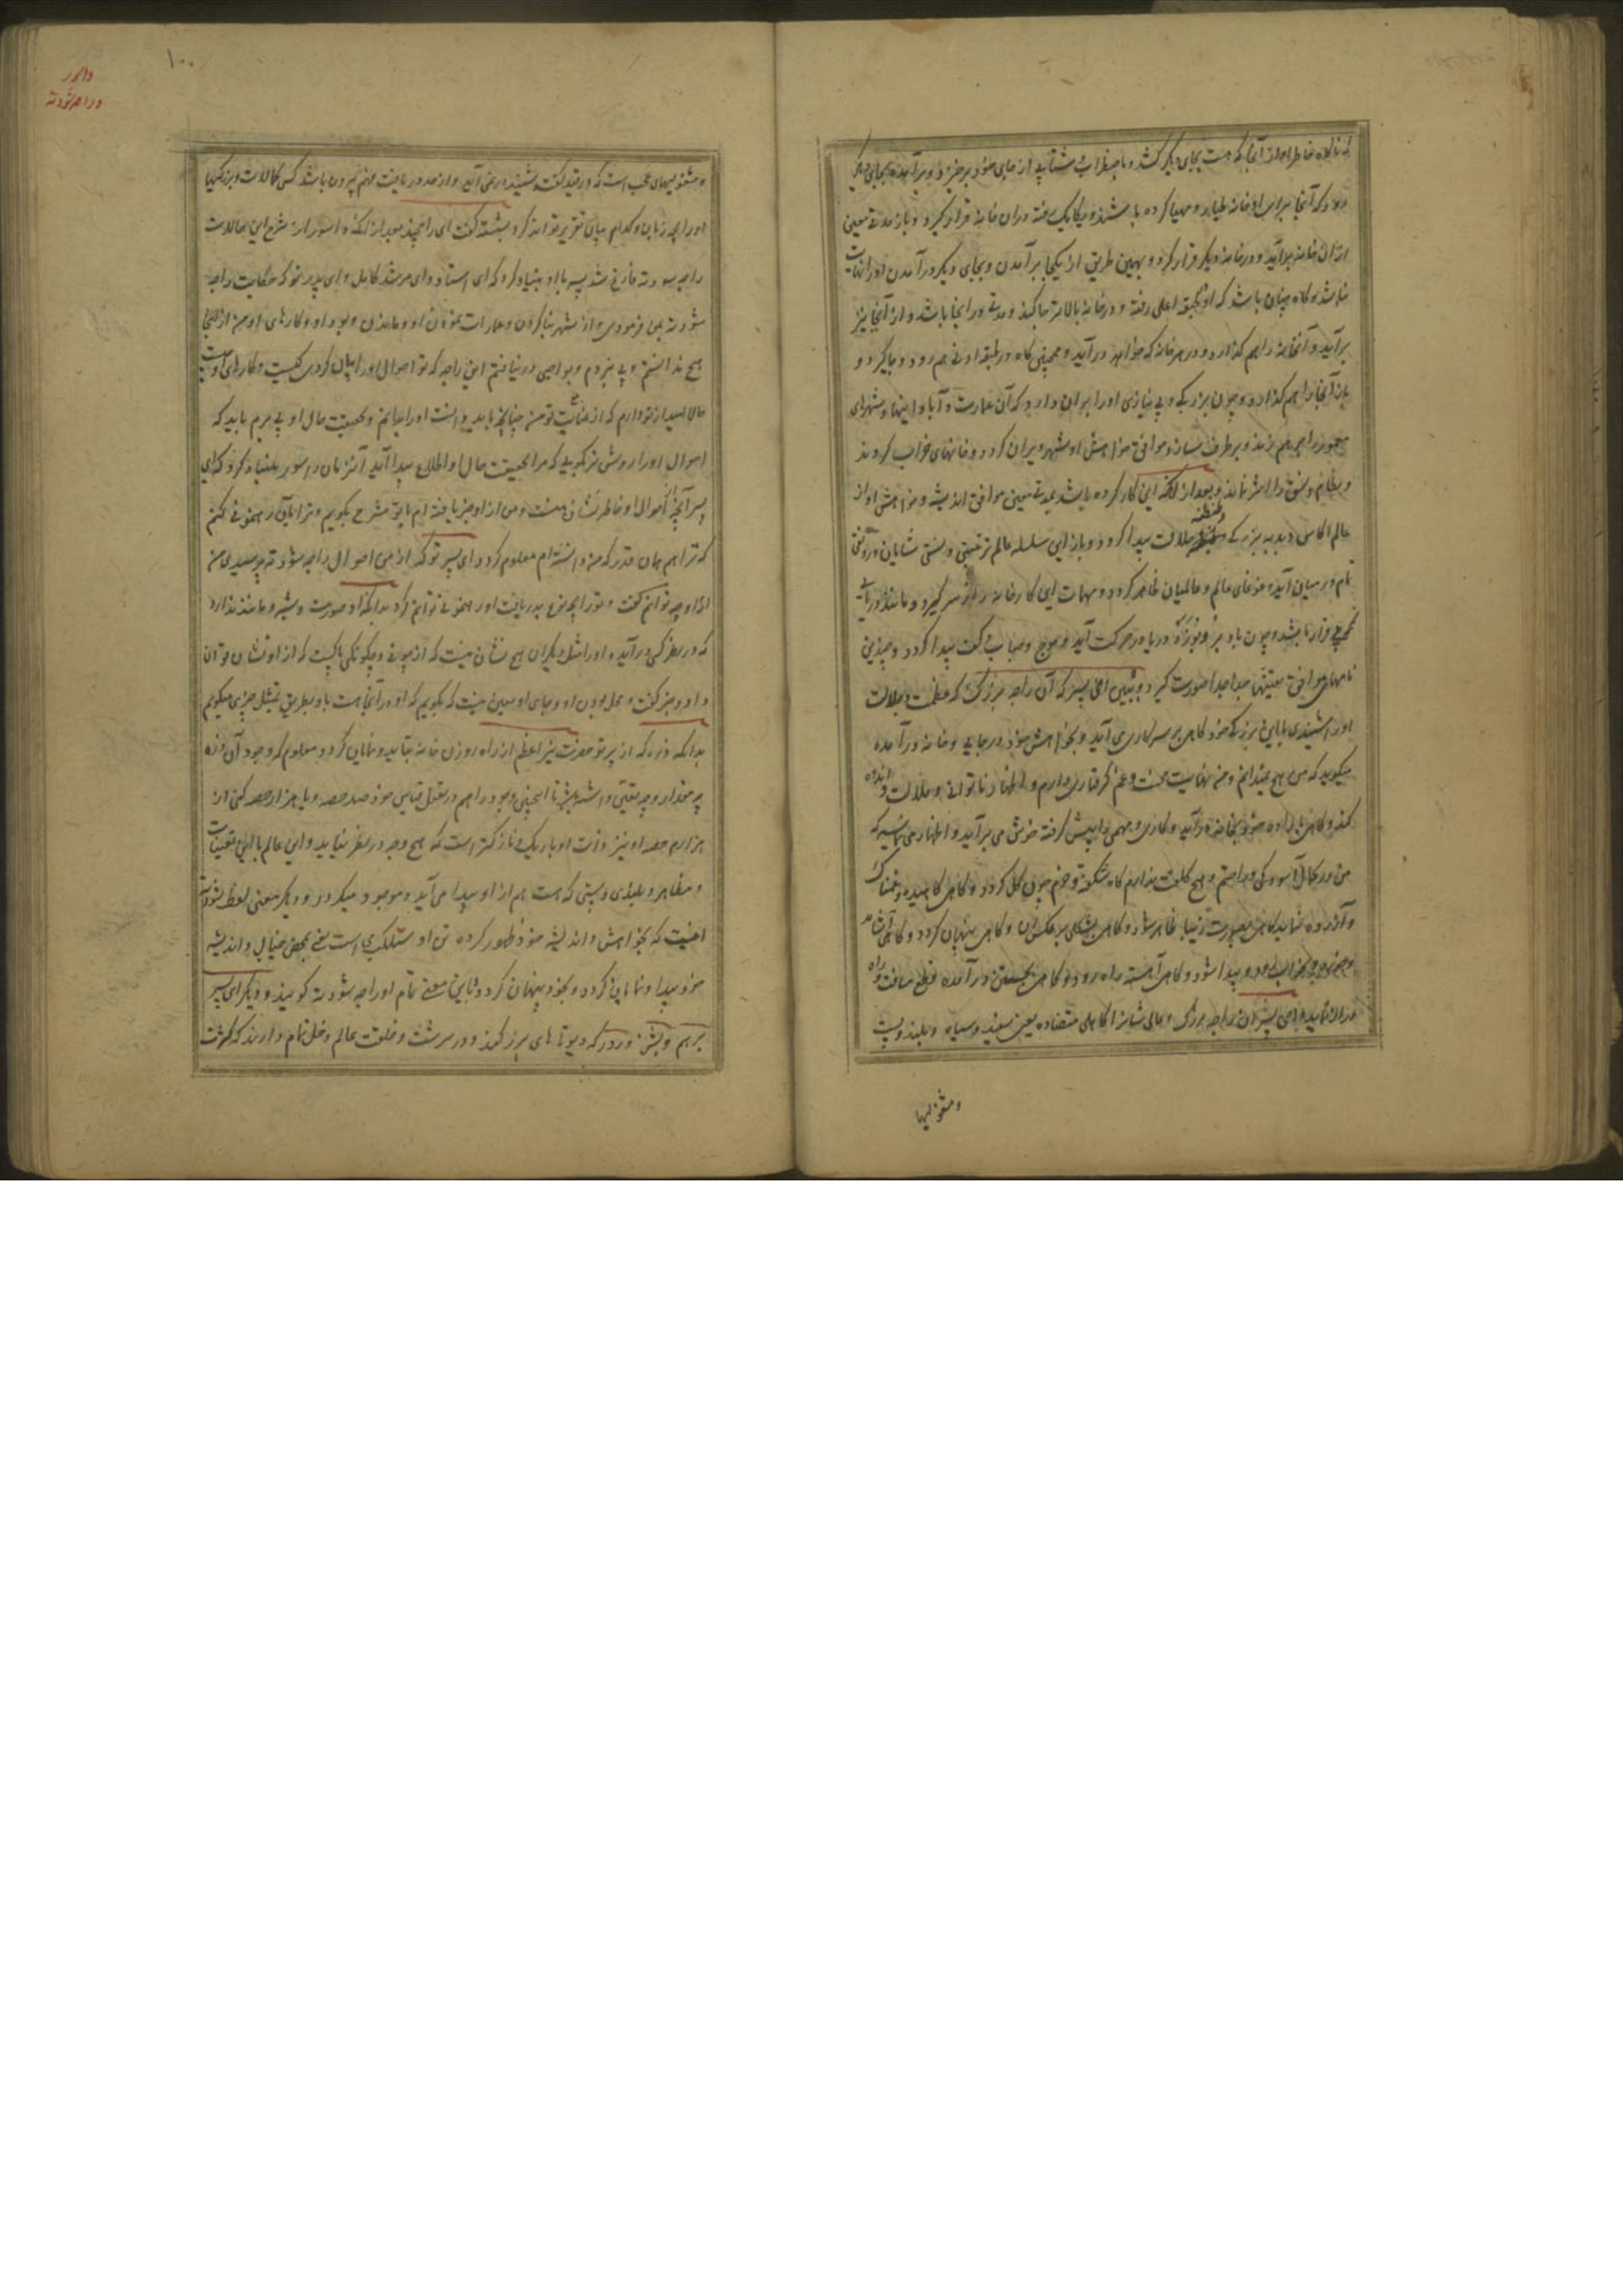 که ناگاه خاطر او از آنجا که هست بجای دیگر کشد و باضطراب و شتابی از جای خود برخیزد و برآمده بجای دیگر
رود که آنجا برای او خانه طیار و مهیا کرده باشند و یکایک رفته دران خانه قرار گیرد و باز مدتی معین
ازان خانه برآید و در خانه دیگر قرار گیرد و بهمین طریق از یکجا برآمدن و بجای دیگر درآمدن او را نهایت
نباشد و گاه چنان باشد که او بطبقه اعلی رفته و در خانه بالا جا کند و مدتی در آنجا باشد و از آنجا نیز
برآید و آنخانه را هم گذارد و در هر خانه که خواهد درآید و همچنین گاه در طبقه ادنی هم رود و جا گیرد و
باز آنجا را هم گذارد و چون بزرگی و بی نیازی او را بران دارد که آن عمارت و آباد اینها و شهرهای
معمور را هم برهم زند و برطرف سازد موافق خواهش او شهر ویران گردد و خانهای خراب گردند
و نظام و نسق را اثر نماند و بعد از آنکه این کار کرده باشد بمدتی معین موافق اندیشه و خواهش او از
عالم اکاس دبدبه بزرگی و طنطنه جلالت پیدا گردد و باز این سلسله عالم ترتیبی و نسقی شایان و رونقی
تمام در میان آید و غوغای عالم و عالمیان ظاهر گردد و مهمات این کارخانه از سر گیرد و مانند دریائی
که برقرار باشد و چون باد بر و بوزد دریا در حرکت آید و موج و حباب و کف پیدا گردد و چندین
نامهای موافق تعینها جدا جدا صورت گیرد و ببین ای پسر که آن راجه بزرگ که عظمت و جلالت
او را شنیدی با این بزرگی خود گاهی بر سر کاری می آید و بخواهش خود در جایی و خانه درآمده
میگوید که من هیچ نمیدانم و من نهایت محنت و غم گرفتاری دارم و اظهار ناتوانی و ملالت و اندوه
کند و گاهی با اراده خود بخانه درآید و کاری و مهمی را پیش گرفته خوش می برآید و اظهار می نماید که
من در کمال آسودگی و راحتم و هیچ کلفت ندارم گاه شگفته و خرم چون گل گردد و گاهی کاهیده و غمناک
و آزرده نماید گاهی بصورت زیبا ظاهر شود و گاهی بشکلی برعکس آن و گاهی پنهان گردد و گاهی آشامد
و خورد و بخواب رود و پیدا شود و گاهی آهسته راه رود و گاهی بجستن درآمده قطع مسافت و راه
دراز نماید ای پسر آن راجه بزرگ و عالی شانرا کارهای متضاده یعنی سفید و سیاه و بلند و پست
و مشغولیها
۱۰۰
داسور
و راجه شودته
و مشغولیهای عجب است که در قید گفت و شنید در نمی آید و از حد دریافت و فهم بیرون باشد کس کمالات و بزرگیهای
او را بچه زبان و کدام بیان تقریر تواند کرد بشسته گفت ای رامچند بعد از آنکه داسور از شرح این حالات
راجه شودته فارغ شد پسر با او بنیاد کرد که ای استاد و ای مرشد کامل و ای پدر تو که حکایت راجه
شودته بمن فرمودی و از شهر بنا کردن و عمارات نمودن او و ماندن و بود او و کارهای او من از اینجا
هیچ ندانستم و پی نبردم و بواجبی درنیافتم این راجه که تو احوال او را بیان کردی کیست و کارهای او چیست
حالا امید از تو دارم که از عنایت تو من چنانچه باید و دانست او را بدانم و بحقیقت حال او پی برم باید که
احوال او را روشن تر گویی که مرا بحقیقت حال او اطلاع پیدا آید آنزمان داسور بنیاد کرد که ای
پسر آنچه از احوال او خاطرنشان منست و من از او خبر یافته ام با تو مشرح بگویم و ترا بآن رهنمونی کنم
که ترا هم همان قدر که من دانسته ام معلوم گردد ای پسر تو که از من احوال راجه شودته پرسیدی من
از او چه توانم گفت و تو را بچه نوع بدریافت او رهنمونی توانم کرد بدانکه او صورت و شبه و مانند ندارد
که در نظر کسی درآید و او را مثل دیگران هیچ نشان نیست که از چونی و چگونگی پاکیست که از او نشان توان
داد و خبر گفت و محل بودن او و جای او معین نیست که بگویم که او در آنجا هست با تو بطریق تمثیل چیزی میگویم
بدانکه ذره که از پرتو حضرت نیر اعظم از راه روزن خانه بتابد و نمایان گردد معلوم که وجود آن ذره
چه مقدار و چه تعینی داشته باشد تا اینچنین وجود را هم در عقل قیاس خود صد حصه و یا هزار حصه کنی از
هزارم حصه او نیز ذات او باریک و نازکتر است که هیچ وجه در نظر نیاید و این عالم با این تعینات
و مظاهر و بلندی و پستی که هست هم از او پیدا می آید و موجود میگردد و دیگر معنی لفظ شودته
اینست که بخواهش و اندیشه خود ظهور کرده تن او سنکلپ است یعنی بمحض خیال و اندیشه
خود پیدا و نمایان گردد و بخود پنهان گردد باین معنی نام او راجه شودته گویند و دیگر ای پسر
برهم و بشن و رودر که دیوتاهای بزرگند و در سرشت و خلقت عالم دخل تمام دارند که کثرت